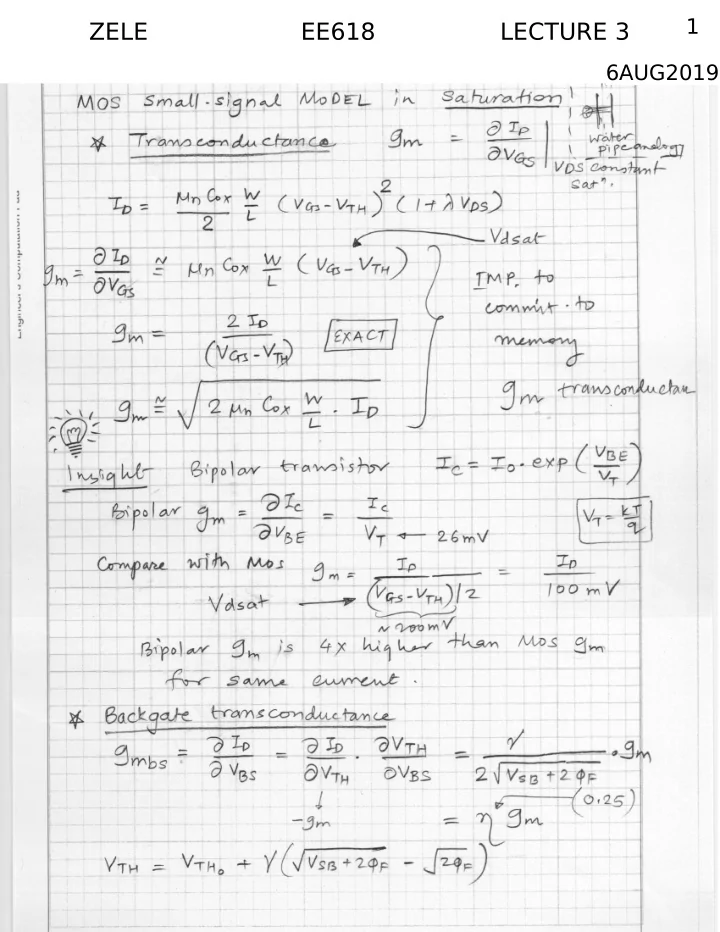 ZELE EE618 LECTURE 3 1
6AUG2019
MOS Small-signal MODEL in Saturation
* Transconductance gm = ∂ID/∂VGS | VDS constant Satⁿ.
water pipe analogy
ID = μn Cox/2 W/L (VGS-VTH)² (1+λVDS)
Vdsat
gm = ∂ID/∂VGS ≅ μn Cox W/L (VGS-VTH)
IMP. to
commit to
memory
gm = 2ID/(VGS-VTH) EXACT
gm transconductan
gm ≅ √(2 μn Cox W/L . ID)
Insight Bipolar transistor Ic = Io. exp (VBE/VT)
Bipolar gm = ∂Ic/∂VBE = Ic/VT ← 26mV VT = kT/q
Compare with Mos gm = ID/(VGS-VTH)/2 = ID/100mV
Vdsat → ~200mV
Bipolar gm is 4x higher than Mos gm
for same current.
* Backgate transconductance
gmbs = ∂ID/∂VBS = ∂ID/∂VTH . ∂VTH/∂VBS = γ/2√(VSB+2φF) . gm
↓
-gm = η gm (0.25)
VTH = VTHo + γ(√(VSB+2φF) - √(2φF))